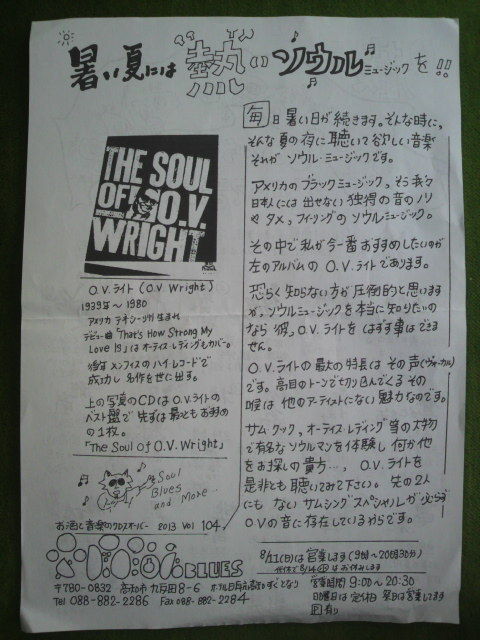 暑い夏には“熱”いソウルミュージックを!!
THE SOUL
OF O.V.
WRIGHT
O.V.ライト (O.V Wright)
1939年～1980
アメリカ テネシー州生まれ
デビュー曲「That's How Strong My
Love Is」はオーティス・レディングもカバー。
後年メンフィスのハイレコードで
成功し名作を世に出す。
上の写真のCDはO.Vライトの
ベスト盤で先ずは最ともおすすめ
の1枚。
「The Soul of O.V. Wright」
Soul
Blues
and More...
お酒と音楽のクロスオーバー 2013 Vol 104
毎日暑い日が続きます。そんな時に、
そんな夏の夜に聴いて欲しい音楽
それがソウル・ミュージックです。
アメリカのブラックミュージック、そう我々
日本人には出せない独得の音のノリ
やタメ、フィーリングのソウルミュージック。
その中で私が今一番おすすめしたいのが
左のアルバムのO.V.ライトであります。
恐らく知らない方が圧倒的と思います
が、ソウルミュージックを本当に知りたいの
なら彼、O.V.ライトをはずす事はできま
せん。
O.V.ライトの最大の特長はその声(ヴォーカル)
です。高目のトーンで切り込んでくるその
喉は他のアーティストにない魅力なのです。
サム・クック、オーティス・レディング当の大物
で有名なソウルマンを体験し何か他
をお探しの貴方…、O.V.ライトを
是非とも聴いてみて下さい。先の2人
にもないサムシングスペシャルが必らず
O.Vの音に存在しているからです。
8/11(日)は営業します(9時～20時30分)
代休で8/14(水)はお休みします
BLUES
〒780-0832 高知市九反田8-6 ホテル日航高知のすぐとなり
Tel 088-882-2286 Fax 088-882-2284
営業時間 9:00～20:30
日曜日は定休日 祭日は営業してます
P有り